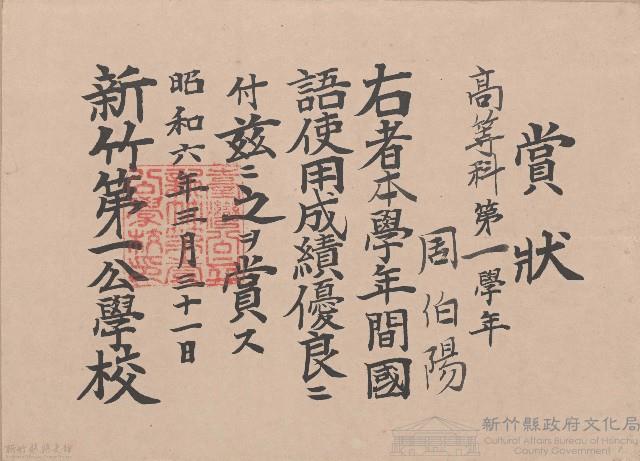 賞狀
高等科第一學年
周伯陽
右者本學年間國
語使用成績優良ニ
付茲ニ之ヲ賞ス
昭和六年三月三十一日
新竹第一公學校
新竹縣政府文化局
Cultural Affairs Bureau of Hsinchu
County Government